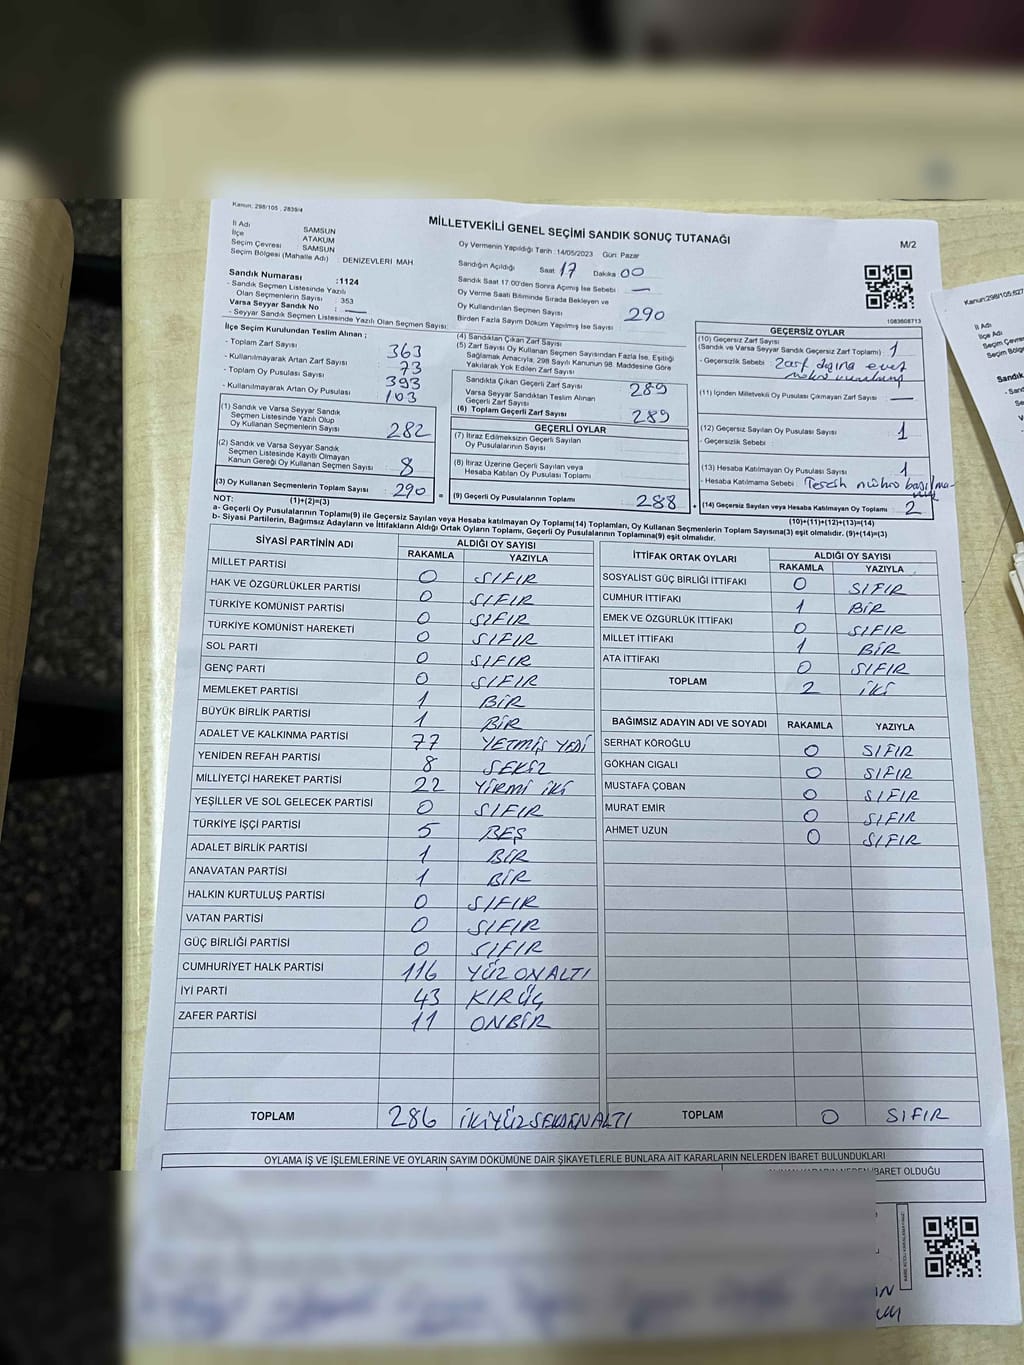 Kanun: 298/105 , 2839/4
MİLLETVEKİLİ GENEL SEÇİMİ SANDIK SONUÇ TUTANAĞI
M/2
İl Adı SAMSUN
İlçe ATAKUM
Seçim Çevresi SAMSUN
Seçim Bölgesi (Mahalle Adı) : DENİZEVLERİ MAH.
Sandık Numarası :1124
- Sandık Seçmen Listesinde Yazılı
Olan Seçmenlerin Sayısı : 353
Varsa Seyyar Sandık No : —
- Seyyar Sandık Seçmen Listesinde Yazılı Olan Seçmen Sayısı:
Oy Vermenin Yapıldığı Tarih : 14/05/2023 Gün: Pazar
Sandığın Açıldığı Saat 17 Dakika 00
Sandık Saat 17.00'den Sonra Açılmış İse Sebebi : —
Oy Verme Saati Bitiminde Sırada Bekleyen ve
Oy Kullandırılan Seçmen Sayısı : 290
Birden Fazla Sayım Döküm Yapılmış İse Sayısı :
1083608713
İlçe Seçim Kurulundan Teslim Alınan ;
- Toplam Zarf Sayısı : 363
- Kullanılmayarak Artan Zarf Sayısı : 73
- Toplam Oy Pusulası Sayısı : 393
- Kullanılmayarak Artan Oy Pusulası : 103
(1) Sandık ve Varsa Seyyar Sandık
Seçmen Listesinde Yazılı Olup
Oy Kullanan Seçmenlerin Sayısı : 282
(2) Sandık ve Varsa Seyyar Sandık
Seçmen Listesinde Kayıtlı Olmayan
Kanun Gereği Oy Kullanan Seçmen Sayısı : 8
(3) Oy Kullanan Seçmenlerin Toplam Sayısı : 290
(1)+(2)=(3)
(4) Sandıktan Çıkan Zarf Sayısı :
(5) Zarf Sayısı Oy Kullanan Seçmen Sayısından Fazla İse, Eşitliği
Sağlamak Amacıyla, 298 Sayılı Kanunun 98. Maddesine Göre
Yakılarak Yok Edilen Zarf Sayısı :
Sandıkta Çıkan Geçerli Zarf Sayısı : 289
Varsa Seyyar Sandıktan Teslim Alınan
Geçerli Zarf Sayısı :
(6) Toplam Geçerli Zarf Sayısı : 289
GEÇERLİ OYLAR
(7) İtiraz Edilmeksizin Geçerli Sayılan
Oy Pusulalarının Sayısı :
(8) İtiraz Üzerine Geçerli Sayılan veya
Hesaba Katılan Oy Pusulası Toplamı :
= (9) Geçerli Oy Pusulalarının Toplamı : 288
GEÇERSİZ OYLAR
(10) Geçersiz Zarf Sayısı
(Sandık ve Varsa Seyyar Sandık Geçersiz Zarf Toplamı) : 1
- Geçersizlik Sebebi : Zarf dışına evet
mührü
(11) İçinden Milletvekili Oy Pusulası Çıkmayan Zarf Sayısı : —
(12) Geçersiz Sayılan Oy Pusulası Sayısı : 1
- Geçersizlik Sebebi :
(13) Hesaba Katılmayan Oy Pusulası Sayısı : 1
- Hesaba Katılmama Sebebi : Tercih mührü basılma-
mış
+ (14) Geçersiz Sayılan veya Hesaba Katılmayan Oy Toplamı : 2
(10)+(11)+(12)+(13)=(14)
NOT:
a- Geçerli Oy Pusulalarının Toplamı(9) ile Geçersiz Sayılan veya Hesaba katılmayan Oy Toplamı(14) Toplamları, Oy Kullanan Seçmenlerin Toplam Sayısına(3) eşit olmalıdır. (9)+(14)=(3)
b- Siyasi Partilerin, Bağımsız Adayların ve İttifakların Aldığı Ortak Oyların Toplamı, Geçerli Oy Pusulaları Toplamına(9) eşit olmalıdır.
SİYASİ PARTİNİN ADI ALDIĞI OY SAYISI
RAKAMLA YAZIYLA
MİLLET PARTİSİ 0 SIFIR
HAK VE ÖZGÜRLÜKLER PARTİSİ 0 SIFIR
TÜRKİYE KOMÜNİST PARTİSİ 0 SIFIR
TÜRKİYE KOMÜNİST HAREKETİ 0 SIFIR
SOL PARTİ 0 SIFIR
GENÇ PARTİ 0 SIFIR
MEMLEKET PARTİSİ 1 BİR
BÜYÜK BİRLİK PARTİSİ 1 BİR
ADALET VE KALKINMA PARTİSİ 77 YETMİŞ YEDİ
YENİDEN REFAH PARTİSİ 8 SEKİZ
MİLLİYETÇİ HAREKET PARTİSİ 22 YİRMİ İKİ
YEŞİLLER VE SOL GELECEK PARTİSİ 0 SIFIR
TÜRKİYE İŞÇİ PARTİSİ 5 BEŞ
ADALET BİRLİK PARTİSİ 1 BİR
ANAVATAN PARTİSİ 1 BİR
HALKIN KURTULUŞ PARTİSİ 0 SIFIR
VATAN PARTİSİ 0 SIFIR
GÜÇ BİRLİĞİ PARTİSİ 0 SIFIR
CUMHURİYET HALK PARTİSİ 116 YÜZ ONALTI
İYİ PARTİ 43 KIRÜÇ
ZAFER PARTİSİ 11 ONBİR
TOPLAM 286 İKİYÜZSEKSENALTI
İTTİFAK ORTAK OYLARI ALDIĞI OY SAYISI
RAKAMLA YAZIYLA
SOSYALİST GÜÇ BİRLİĞİ İTTİFAKI 0 SIFIR
CUMHUR İTTİFAKI 1 BİR
EMEK VE ÖZGÜRLÜK İTTİFAKI 0 SIFIR
MİLLET İTTİFAKI 1 BİR
ATA İTTİFAKI 0 SIFIR
TOPLAM 2 İKİ
BAĞIMSIZ ADAYIN ADI VE SOYADI RAKAMLA YAZIYLA
SERHAT KÖROĞLU 0 SIFIR
GÖKHAN CIGALI 0 SIFIR
MUSTAFA ÇOBAN 0 SIFIR
MURAT EMİR 0 SIFIR
AHMET UZUN 0 SIFIR
TOPLAM 0 SIFIR
OYLAMA İŞ VE İŞLEMLERİNE VE OYLARIN SAYIM DÖKÜMÜNE DAİR ŞİKAYETLERLE BUNLARA AİT KARARLARIN NELERDEN İBARET BULUNDUKLARI
İBARET OLDUĞU
Kanun:298/105;627
İl Adı
İlçe Adı
Seçim Çevre
Seçim Bölge
Sandık